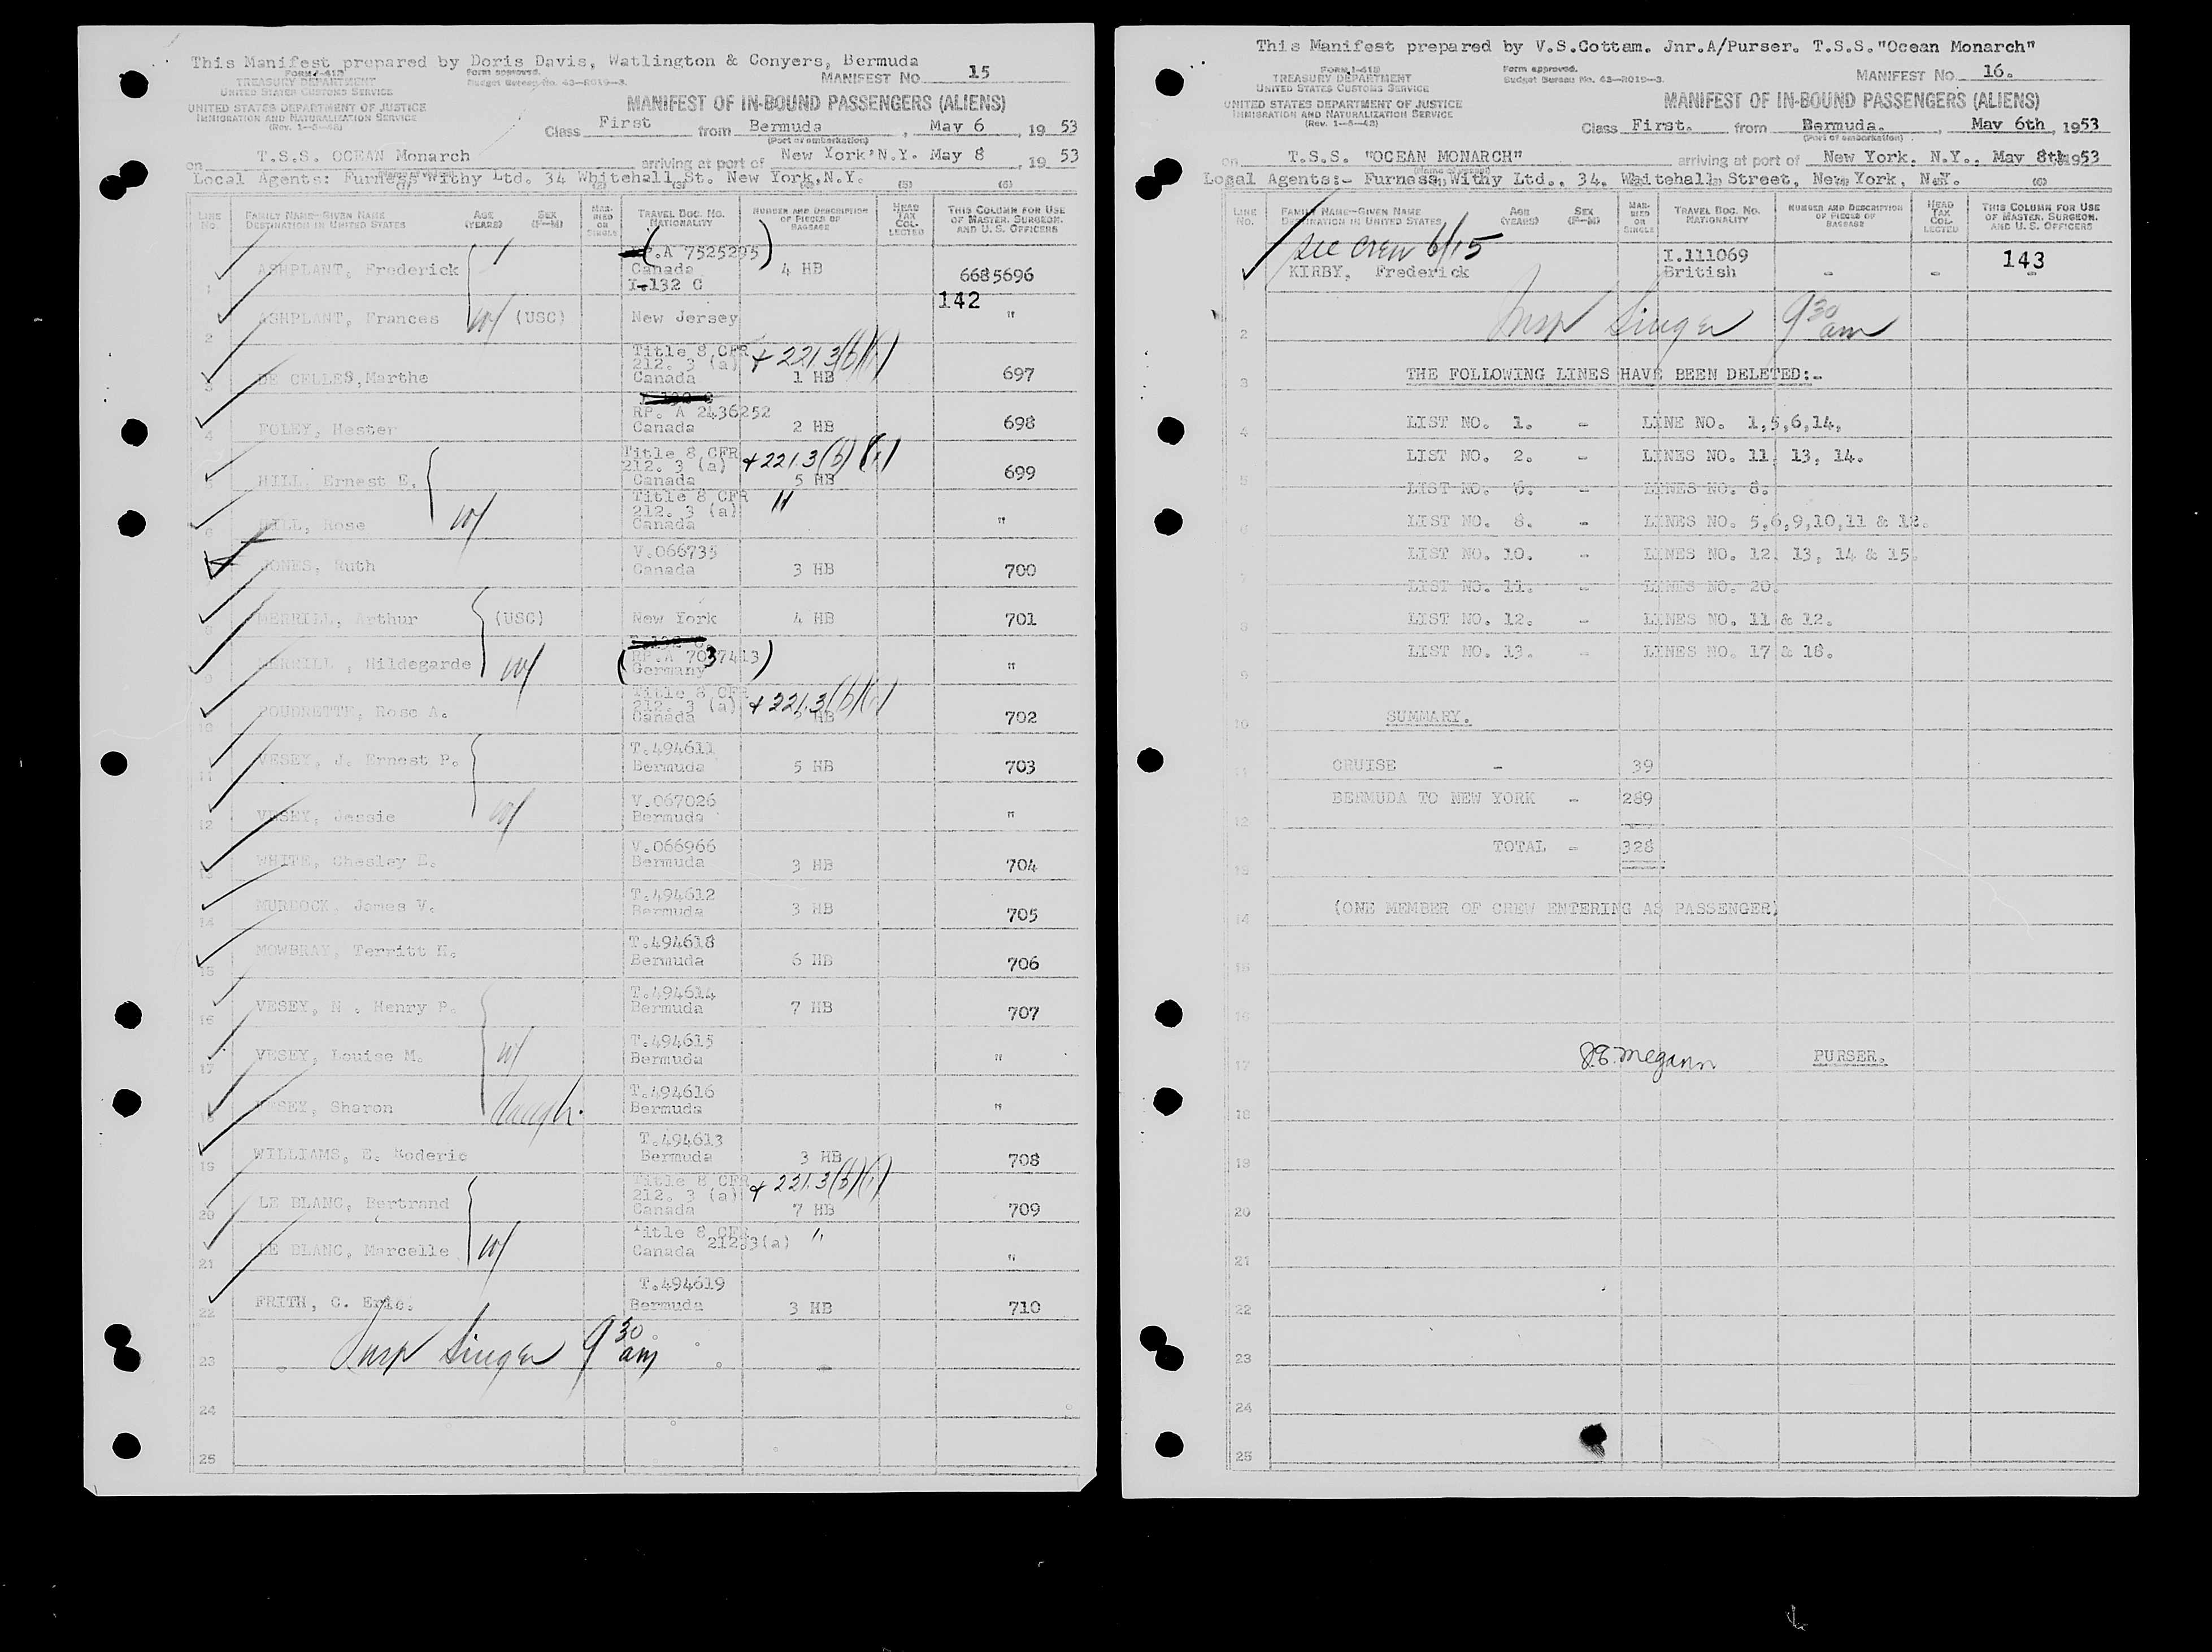 This Manifest prepared by Doris Davis, Watlington & Conyers, Bermuda
FORM I-418
TREASURY DEPARTMENT
UNITED STATES CUSTOMS SERVICE
Form approved.
Budget Bureau No. 43—R019—3.
MANIFEST NO. 15
UNITED STATES DEPARTMENT OF JUSTICE
IMMIGRATION AND NATURALIZATION SERVICE
(Rev. 1—5—42)
MANIFEST OF IN-BOUND PASSENGERS (ALIENS)
Class First from Bermuda, May 6, 19 53
(Port of embarkation)
on T.S.S. OCEAN Monarch arriving at port of New York, N.Y. May 8, 19 53
Local Agents: Furness Withy Ltd. 34 Whitehall St. New York,N.Y.
(1) (2) (3) (4) (5) (6)
LINE NO. FAMILY NAME—GIVEN NAME DESTINATION IN UNITED STATES AGE (YEARS) SEX (F—M) MARRIED OR SINGLE TRAVEL DOC. NO. NATIONALITY NUMBER AND DESCRIPTION OF PIECES OF BAGGAGE HEAD TAX COLLECTED THIS COLUMN FOR USE OF MASTER, SURGEON, AND U. S. OFFICERS
1 ASHPLANT, Frederick (RP.A 7525295) Canada I-132 C 4 HB 6685696
142
2 ASHPLANT, Frances W/ (USC) New Jersey "
3 DE CELLES,Marthe Title 8 CFR 212. 3 (a) + 221.3(b)(1) Canada 1 HB 697
4 FOLEY, Hester RP. A 2436252 Canada 2 HB 698
5 HILL, Ernest E. Title 8 CFR 212. 3 (a) + 221.3(b)(1) Canada 5 HB 699
6 HILL, Rose W/ Title 8 CFR 212. 3 (a) " Canada "
7 JONES, Ruth V.066735 Canada 3 HB 700
8 MERRILL, Arthur (USC) New York 4 HB 701
9 MERRILL, Hildegarde W/ (RP.A 7037413) Germany "
10 POUDRETTE, Rose A. Title 8 CFR 212. 3 (a) + 221.3(b)(1) Canada 2 HB 702
11 VESEY, J. Ernest P. T.494611 Bermuda 5 HB 703
12 VESEY, Jessie W/ V.067026 Bermuda "
13 WHITE, Chesley E. V.066966 Bermuda 3 HB 704
14 MURDOCK, James V. T.494612 Bermuda 3 HB 705
15 MOWBRAY, Territt H. T.494618 Bermuda 6 HB 706
16 VESEY, N . Henry P. T.494614 Bermuda 7 HB 707
17 VESEY, Louise M. W/ T.494615 Bermuda "
18 VESEY, Sharon daugh. T.494616 Bermuda "
19 WILLIAMS, E. Roderic T.494613 Bermuda 3 HB 708
20 LE BLANC, Bertrand Title 8 CFR 212. 3 (a) + 221.3(b)(1) Canada 7 HB 709
21 LE BLANC, Marcelle W/ Title 8 CFR 212.3(a) " Canada "
22 FRITH, C. Eric. T.494619 Bermuda 3 HB 710
23 Insp Singer 9 30 am
24
25
This Manifest prepared by V.S.Cottam. Jnr.A/Purser. T.S.S."Ocean Monarch"
FORM I-418
TREASURY DEPARTMENT
UNITED STATES CUSTOMS SERVICE
Form approved.
Budget Bureau No. 43—R019—3.
MANIFEST NO. 16.
UNITED STATES DEPARTMENT OF JUSTICE
IMMIGRATION AND NATURALIZATION SERVICE
(Rev. 1—5—42)
MANIFEST OF IN-BOUND PASSENGERS (ALIENS)
Class First. from Bermuda. , May 6th, 1953
(Port of embarkation)
on T.S.S. "OCEAN MONARCH" arriving at port of New York. N.Y., May 8th 1953
Local Agents:- Furness Withy Ltd., 34. Whitehall Street, New York, N.Y.
LINE NO. FAMILY NAME—GIVEN NAME DESTINATION IN UNITED STATES AGE (YEARS) SEX (F—M) MARRIED OR SINGLE TRAVEL DOC. NO. NATIONALITY NUMBER AND DESCRIPTION OF PIECES OF BAGGAGE HEAD TAX COLLECTED THIS COLUMN FOR USE OF MASTER, SURGEON, AND U. S. OFFICERS
See Crew 6/15
KIRBY, Frederick I.111069 British - - 143 -
2 Insp Singer 9 30 am
3 THE FOLLOWING LINES HAVE BEEN DELETED:-
4 LIST NO. 1. - LINE NO. 1,5,6,14,
LIST NO. 2. - LINES NO. 11, 13, 14.
5 LIST NO. 6. - LINES NO. 8.
6 LIST NO. 8. - LINES NO. 5,6,9,10,11 & 12.
LIST NO. 10. - LINES NO. 12, 13, 14 & 15.
7 LIST NO. 11. - LINES NO. 20.
8 LIST NO. 12. - LINES NO. 11 & 12.
LIST NO. 13. - LINES NO. 17 & 18.
9
10 SUMMARY.
11 CRUISE - 39
BERMUDA TO NEW YORK - 289
12
TOTAL - 328
13
14 (ONE MEMBER OF CREW ENTERING AS PASSENGER)
15
16
17 J.E. Megann PURSER.
18
19
20
21
22
23
24
25